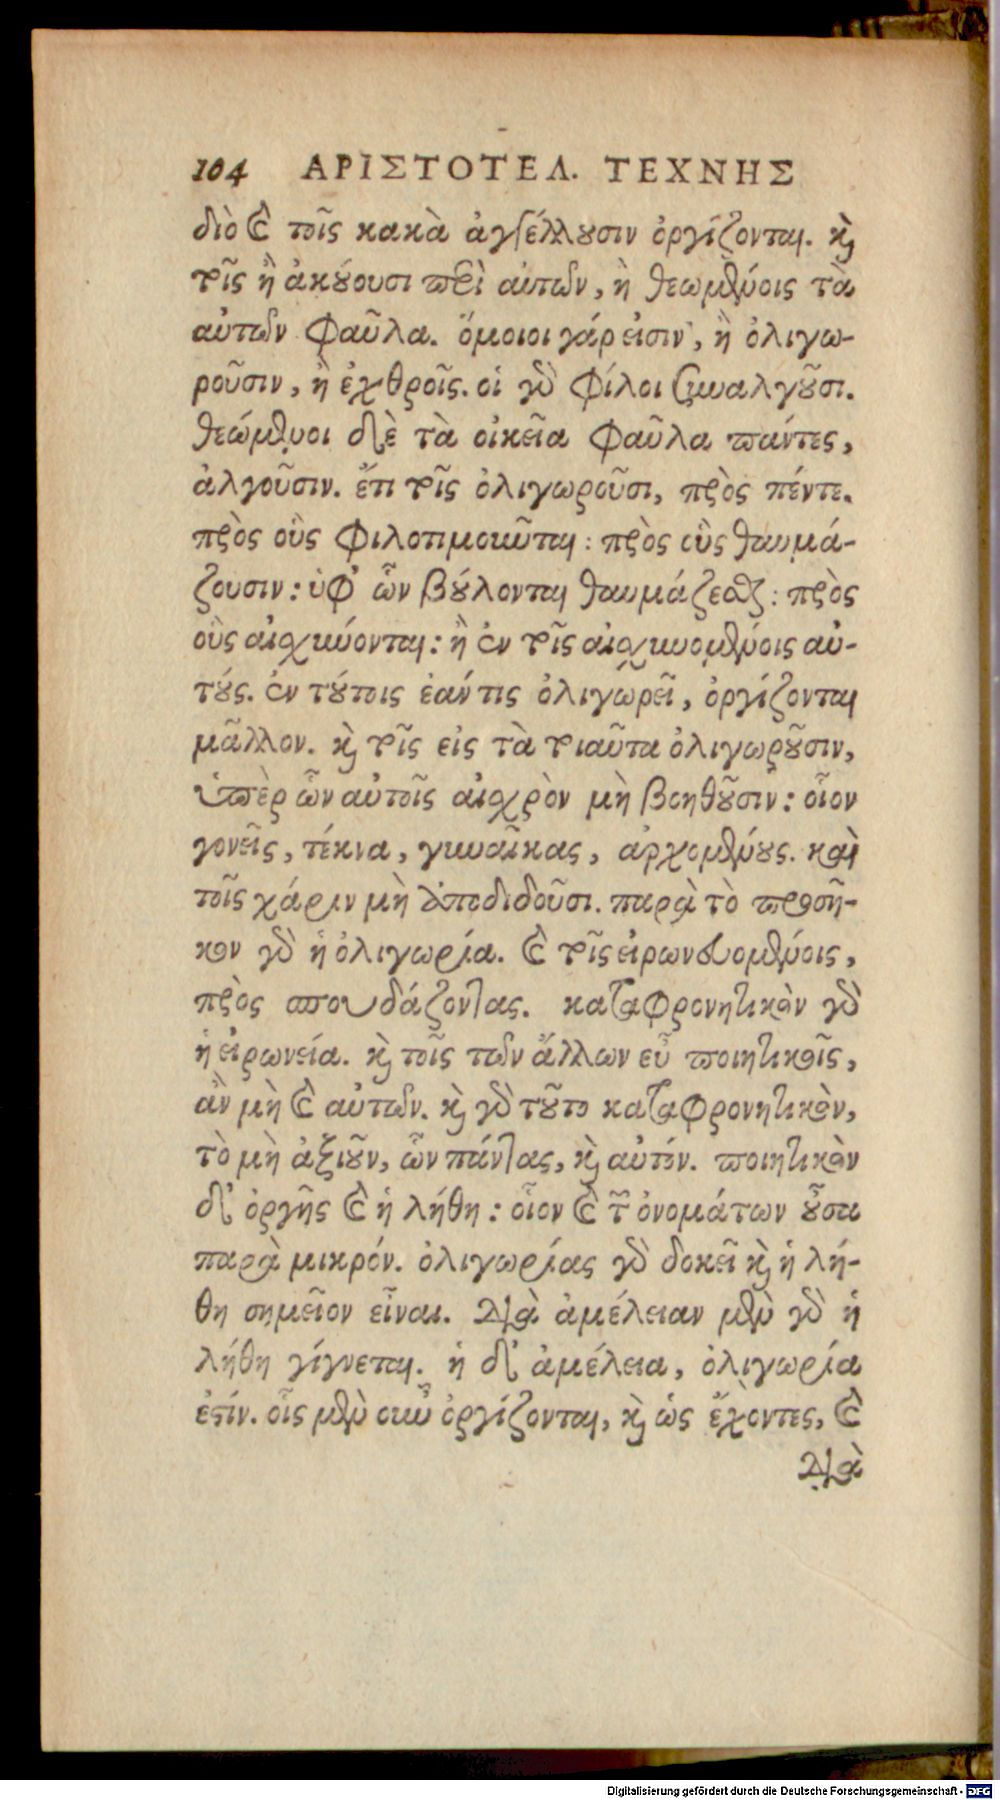 104 ΑΡΙΣΤΟΤΕΛ. ΤΕΧΝΗΣ
διὸ καὶ τοῖς κακὰ ἀγγέλλουσιν ὀργίζονται. καὶ
τοῖς ἢ ἀκούουσι περὶ αὐτῶν, ἢ θεωμένοις τὰ
αὐτῶν φαῦλα. ὅμοιοι γάρ εἰσιν, ἢ ὀλιγω-
ροῦσιν, ἢ ἐχθροῖς. οἱ γὰρ φίλοι συναλγοῦσι.
θεώμενοι δὲ τὰ οἰκεῖα φαῦλα πάντες,
ἀλγοῦσιν. ἔτι τοῖς ὀλιγωροῦσι, πρὸς πέντε.
πρὸς οὓς φιλοτιμοῦνται: πρὸς οὓς θαυμά-
ζουσιν: ὑφ' ὧν βούλονται θαυμάζεσθαι: πρὸς
οὓς αἰσχύνονται: ἢ ἐν τοῖς αἰσχυνομένοις αὐ-
τούς. ἐν τούτοις ἐάν τις ὀλιγωρεῖ, ὀργίζονται
μᾶλλον. καὶ τοῖς εἰς τὰ τοιαῦτα ὀλιγωροῦσιν,
ὑπὲρ ὧν αὐτοῖς αἰσχρὸν μὴ βοηθοῦσιν: οἷον
γονεῖς, τέκνα, γυναῖκας, ἀρχομένους. καὶ
τοῖς χάριν μὴ ἀποδιδοῦσι. παρὰ τὸ προσῆ-
κον γὰρ ἡ ὀλιγωρία. καὶ τοῖς εἰρωνευομένοις,
πρὸς σπουδάζοντας. καταφρονητικὸν γὰρ
ἡ εἰρωνεία. καὶ τοῖς τῶν ἄλλων εὖ ποιητικοῖς,
ἂν μὴ καὶ αὐτῶν. καὶ γὰρ τοῦτο καταφρονητικὸν,
τὸ μὴ ἀξιοῦν, ὧν πάντας, καὶ αὐτόν. ποιητικὸν
δ' ὀργῆς καὶ ἡ λήθη: οἷον καὶ τῶν ὀνομάτων οὖσα
παρὰ μικρόν. ὀλιγωρίας γὰρ δοκεῖ καὶ ἡ λή-
θη σημεῖον εἶναι. διὰ ἀμέλειαν μὲν γὰρ ἡ
λήθη γίγνεται. ἡ δ' ἀμέλεια, ὀλιγωρία
ἐστίν. οἷς μὲν οὖν ὀργίζονται, καὶ ὡς ἔχοντες, καὶ
διὰ
Digitalisierung gefördert durch die Deutsche Forschungsgemeinschaft - DFG